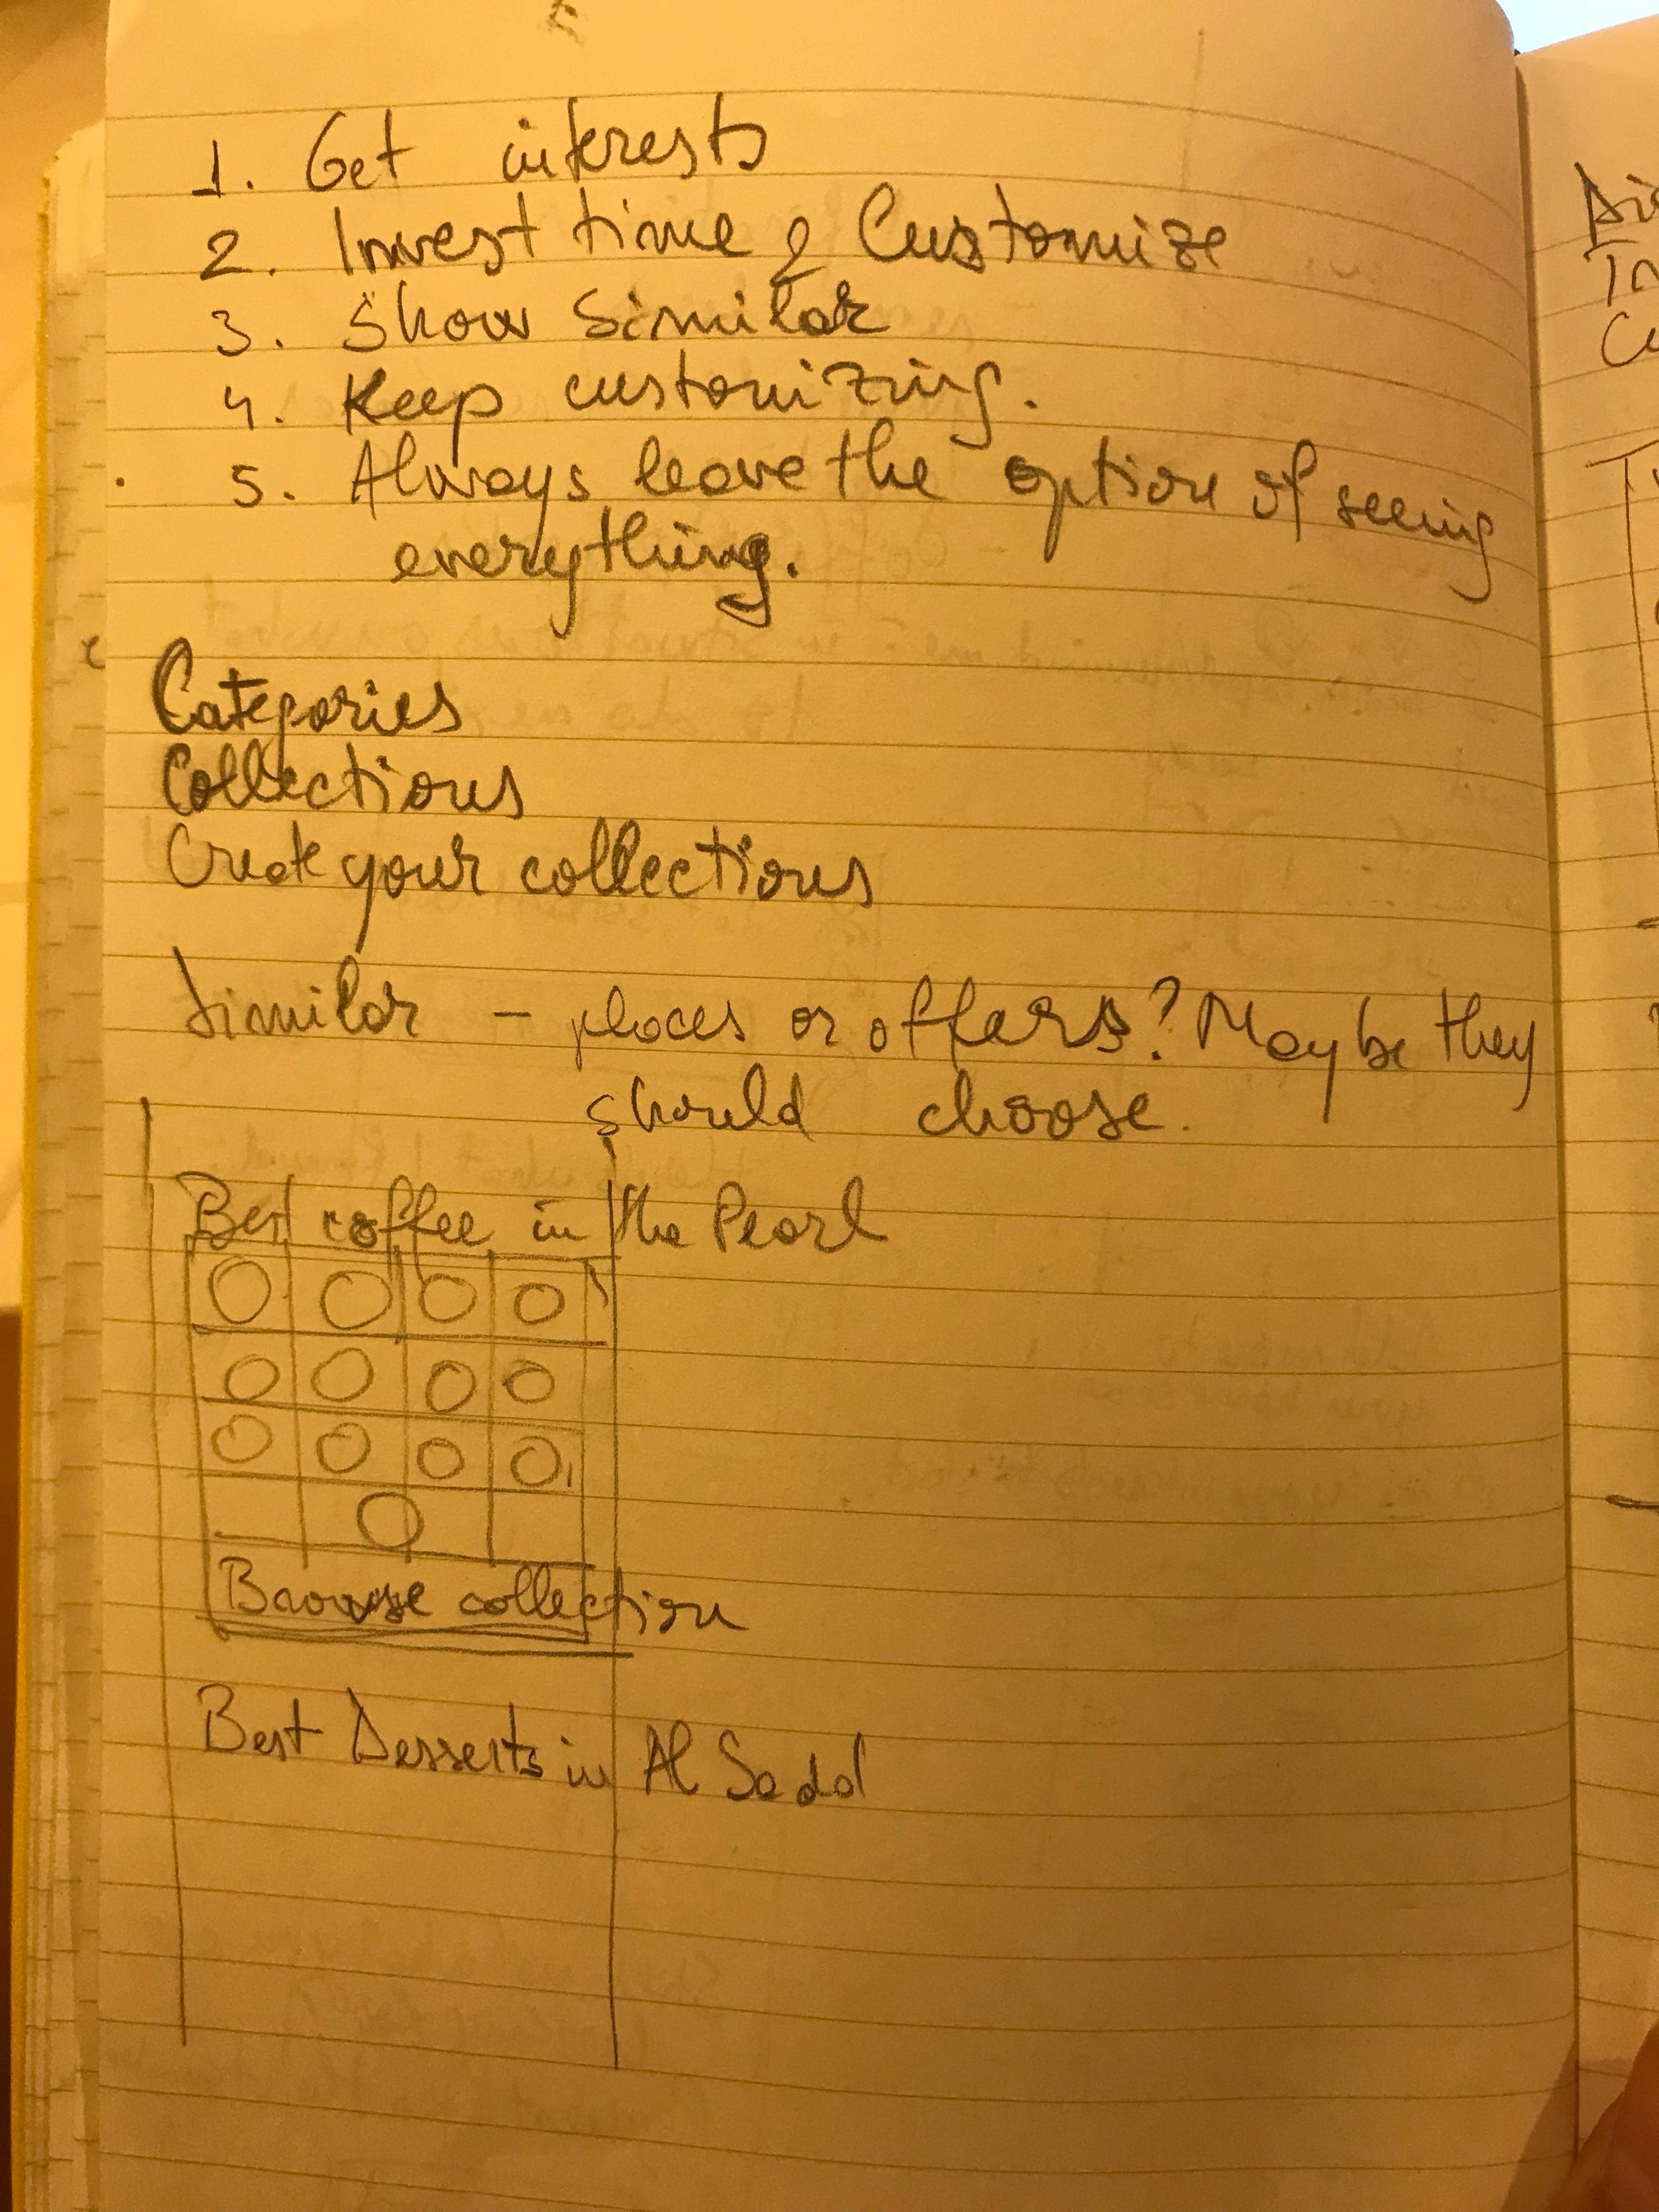 1. Get interests
2. Invest time & Customize
3. Show Similar
4. Keep customizing.
5. Always leave the option of seeing
everything.
Categories
Collections
Create your collections
Similar - places or offers? Maybe they
should choose.
Best coffee in the Pearl
Browse collection
Best Desserts in Al Sadd